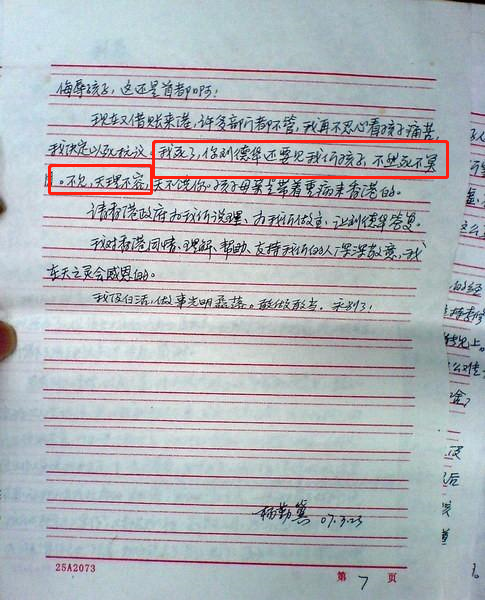 侮辱孩子，这还是首都啊！
现在又借账来港，许多部门都不管，我再不忍心看孩子痛苦，
我决定以死抗议。我死了，你刘德华还要见我们孩子，不然死不冥
目。不见，天理不容，天不饶你。孩子母亲是带着重病来香港的。
请香港政府为我们说理，为我们做主，让刘德华答复。
我对香港同情、理解、帮助、支持我们的人深深敬意，我
在天之灵会感恩的。
我没白活，做事光明磊落。敢做敢当。永别了！
杨勤冀 07.3.25
25A2073
第 7 页